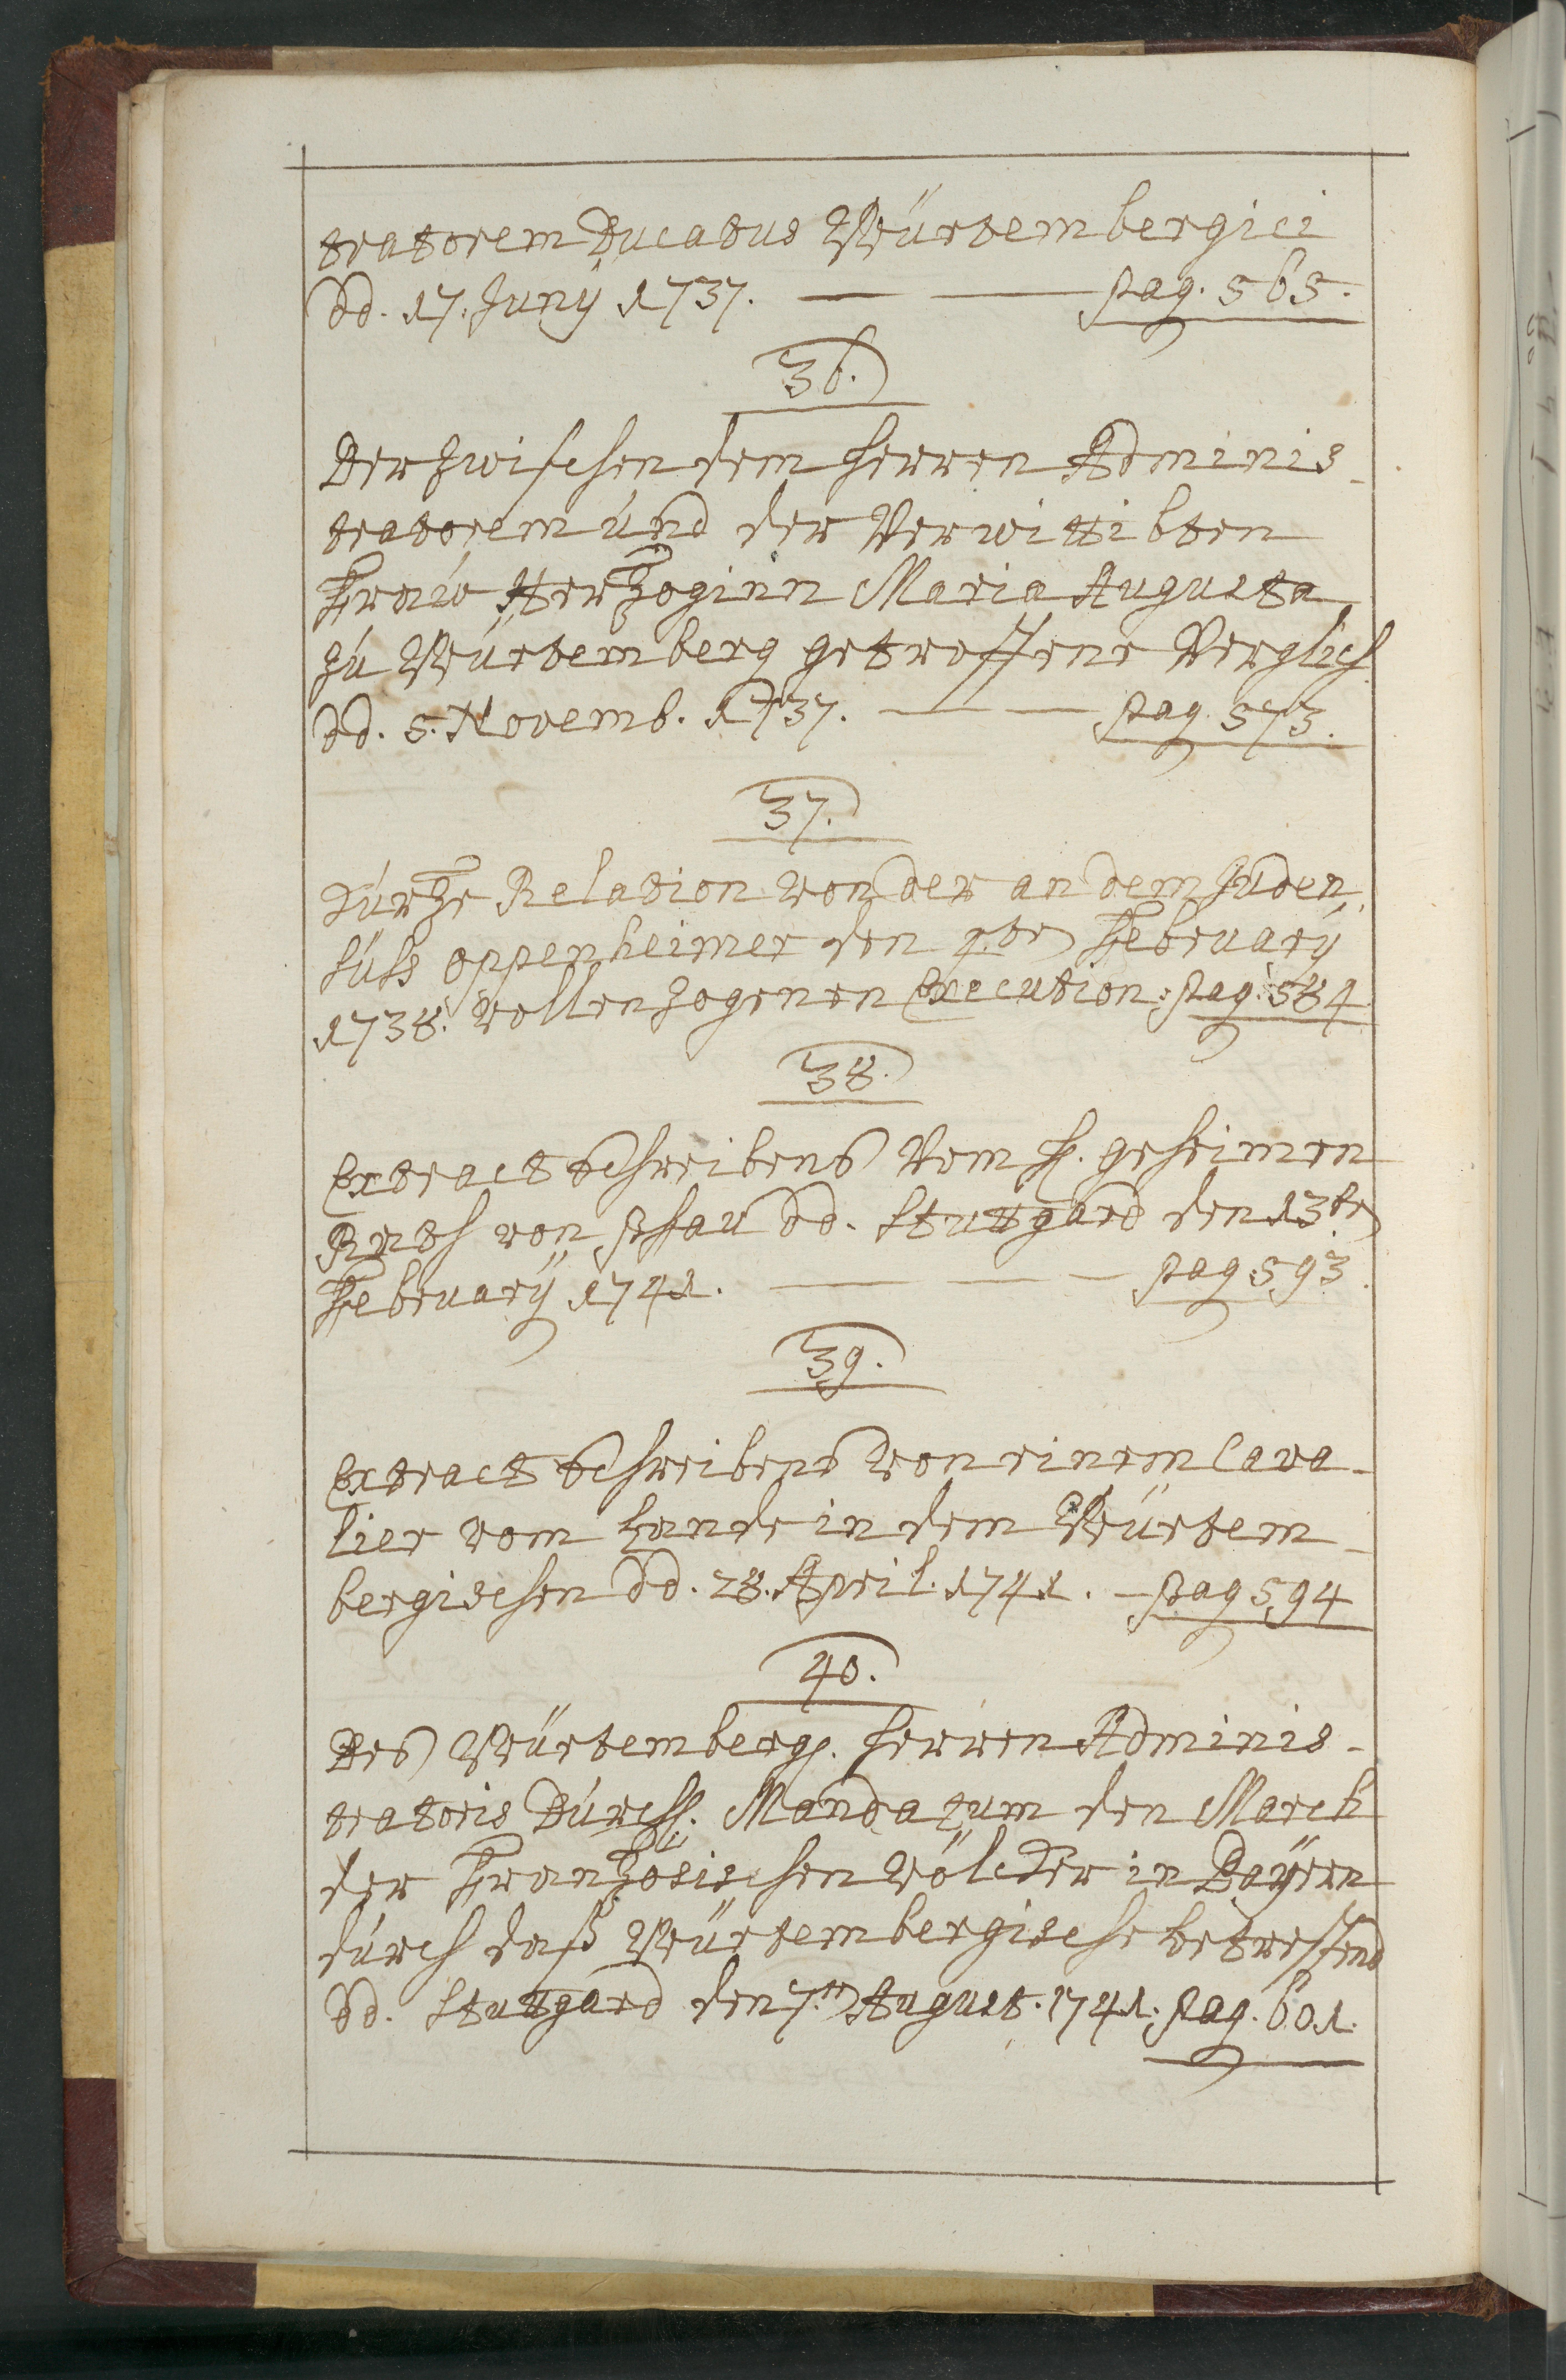 tratorem Ducatus Würtembergici
dd. 17. Junÿ 1737. — — pag. 565.
36.
Der zwischen dem Herren Adminis-
tratorem und der Verwittibten
Frau Hertzoginn Maria Augusta
zu Würtemberg getroffene Verglich
dd. 5. Novemb. 1737. — — pag. 573.
37.
Kurtze Relation von der an dem Juden
Süß Oppenheimer den 4.ten Februarÿ
1738. vollenzogenen Execution. pag. 584
38.
Extract Schreibens Vom H. geheimen
Rath von Pfau dd. Stuttgard den 13ten
Februarÿ 1741. — — — pag. 593.
39.
Extract Schreibens von einem Cava-
lier vom Lande in dem Würtem-
bergischen dd. 28. April. 1741. — pag 594
40.
Des Würtemberg. Herren Adminis-
tratoris Durchl. Mandatum den March
der Frantzösischen Völcker in Baÿern
durch daß Würtembergische betreffend
dd. Stuttgard den 7.ten August. 1741. pag. 601.